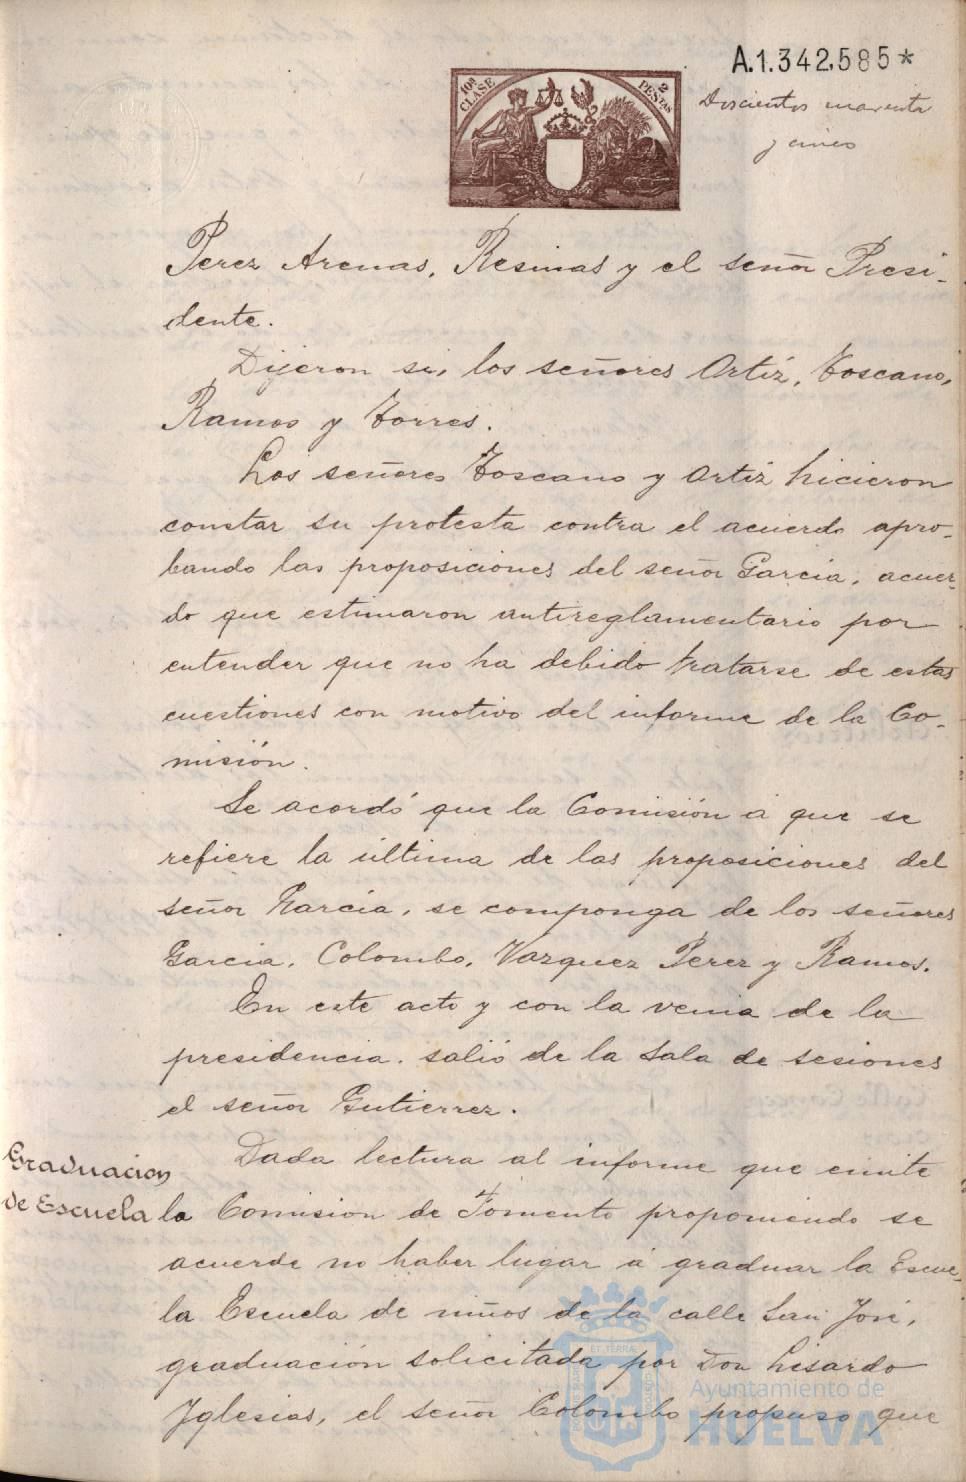 A.1.342,585*
10ª CLASE
2 PESTAS
Doscientos cuarenta
y cinco
Perez Arenas, Resinas y el señor Presi-
dente.
Dijeron si, los señores Ortiz, Toscano,
Ramos y Torres.
Los señores Toscano y Ortiz hicieron
constar su protesta contra el acuerdo apro-
bando las proposiciones del señor Garcia, acuer-
do que estimaron antireglamentario por
entender que no ha debido tratarse de estas
cuestiones con motivo del informe de la Co-
misión.
Se acordó que la Comisión á que se
refiere la última de las proposiciones del
señor Garcia, se componga de los señores
Garcia, Colombo, Vazquez Perez y Ramos.
En este acto y con la venia de la
presidencia. salió de la Sala de sesiones
el señor Gutierrez.
Graduacion
de Escuela
Dada lectura al informe que emite
la Comision de Fomento proponiendo se
acuerde no haber lugar á graduar la Escue-
la Escuela de niños de la calle San José,
graduación solicitada por Don Lisardo
Yglesias, el señor Colombo propuso que
ET TERRA
Ayuntamiento de
HUELVA